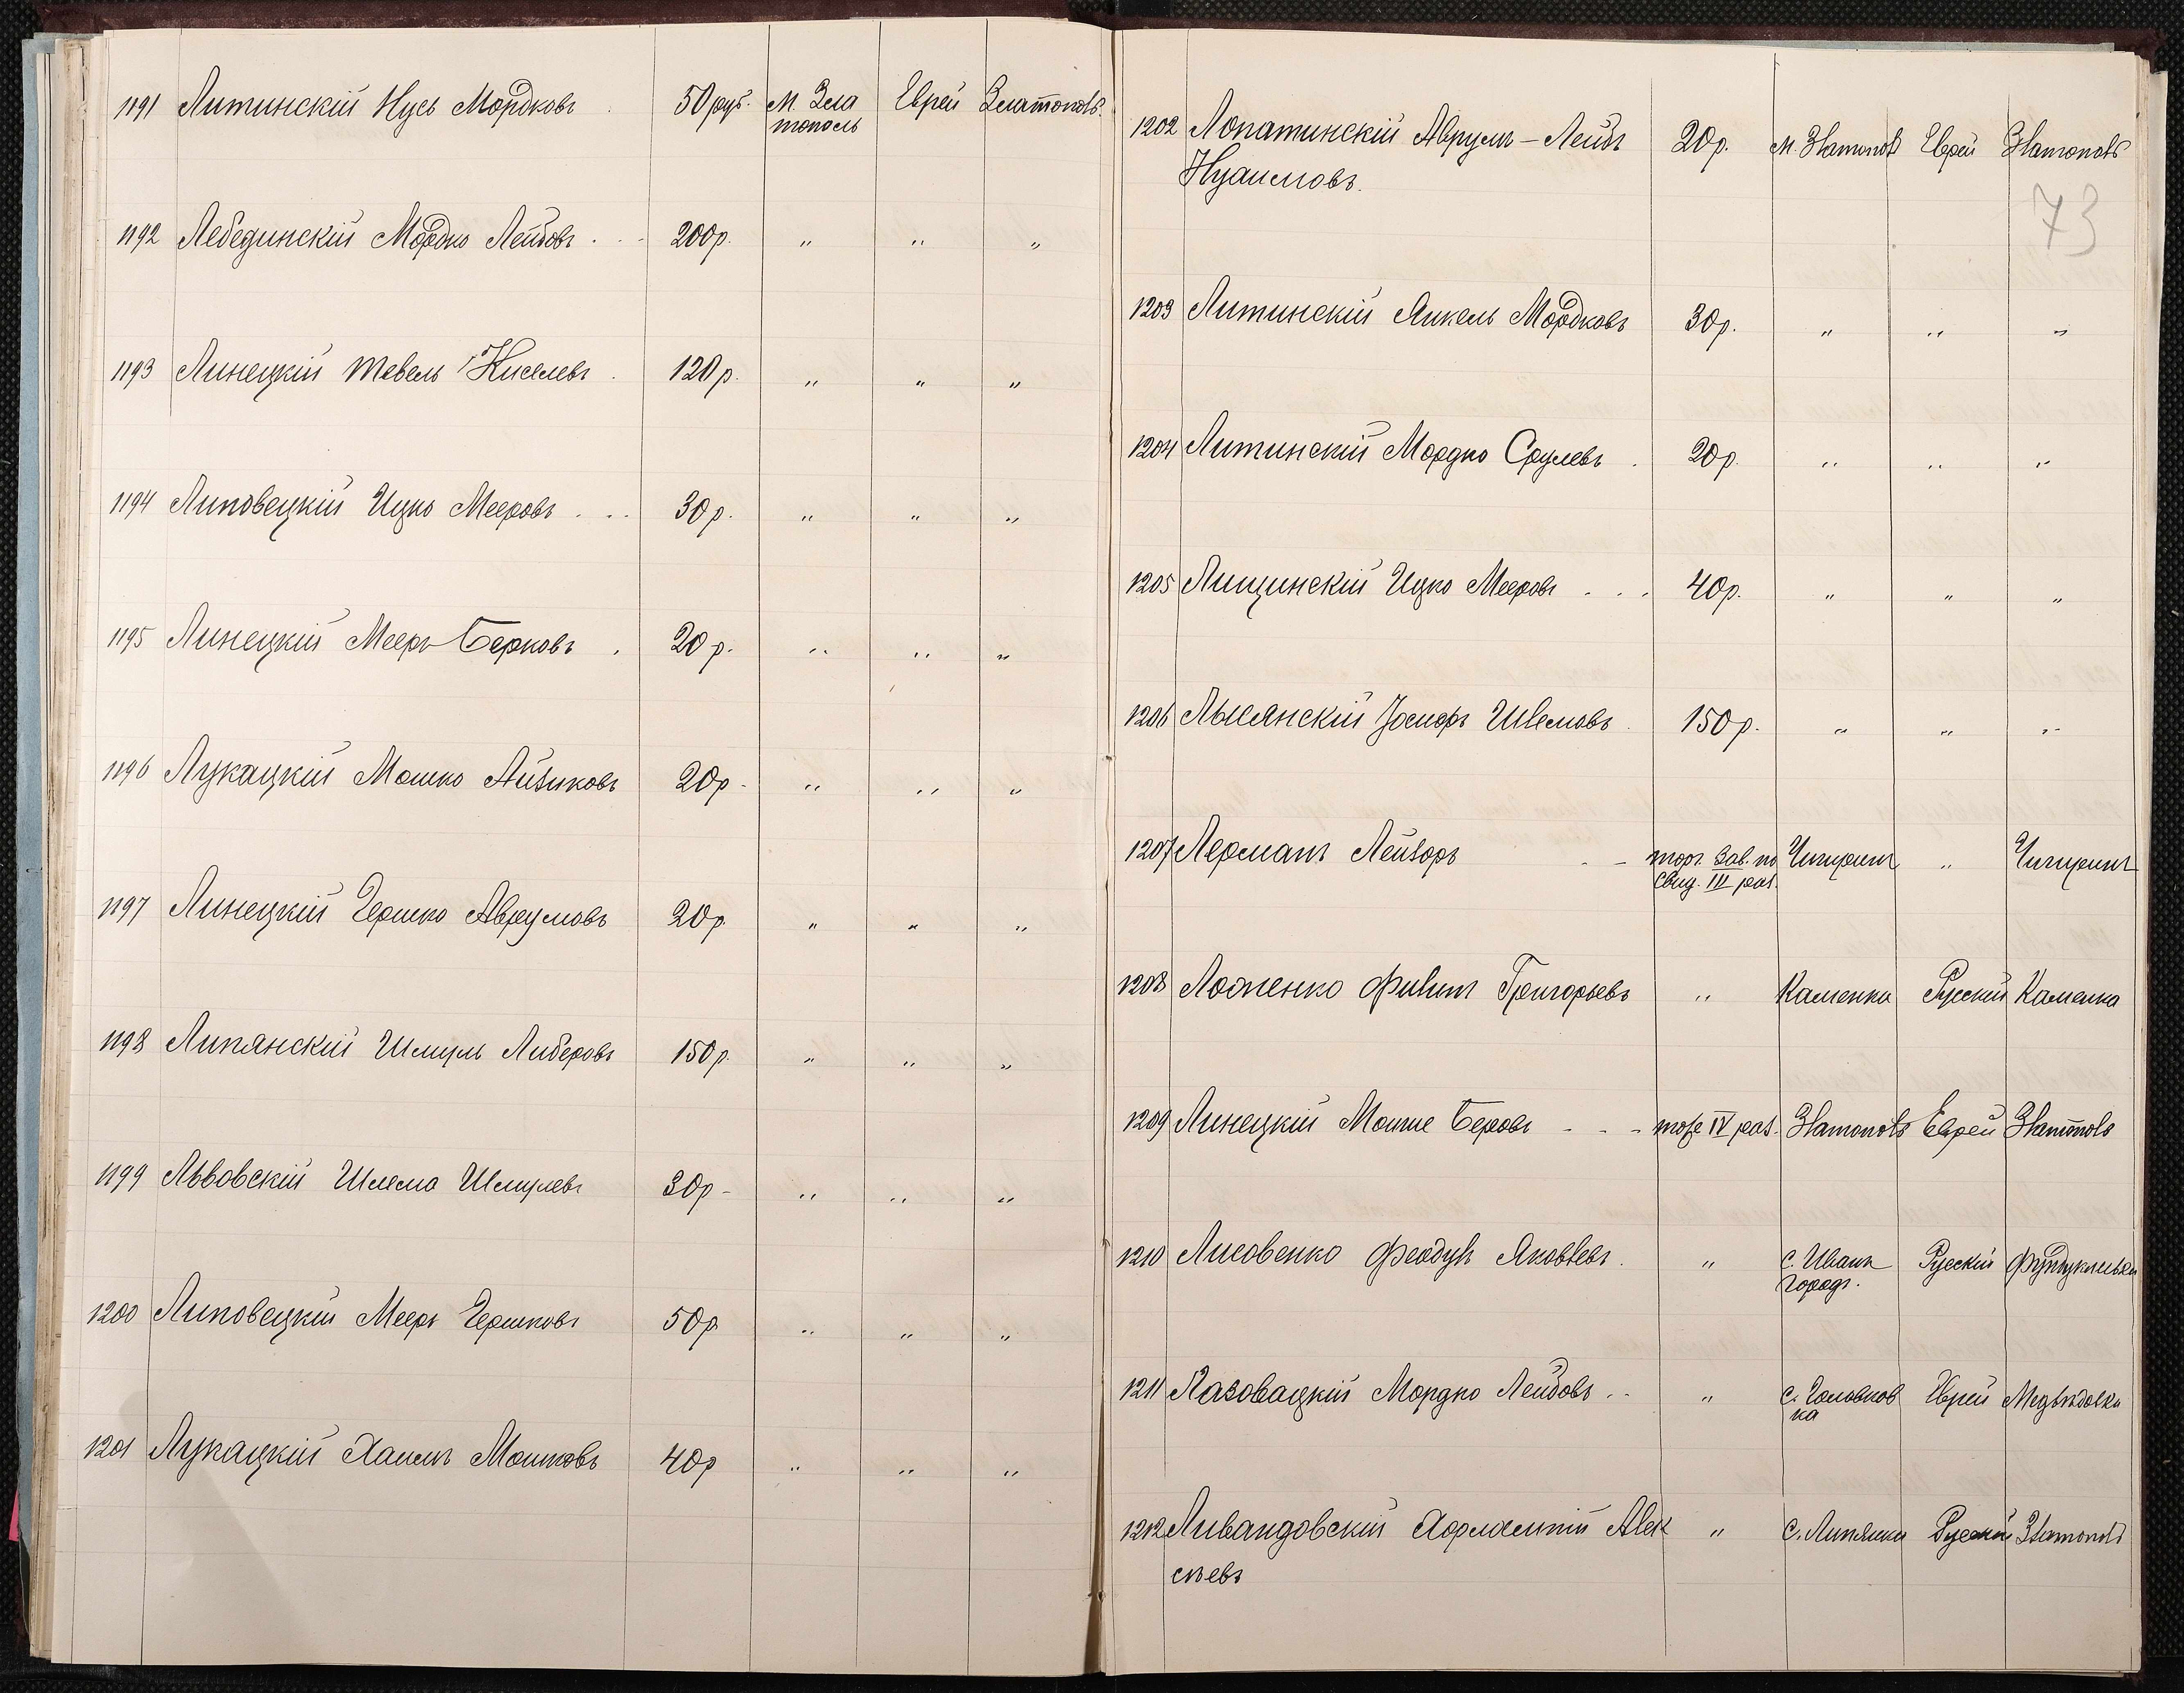 1191 Литинскій Нусь Мордковъ 50 руб. м. Зла Еврей Златополь.
тополь
1192 Лебединскій Мордко Лейбовъ . . . 200 р. " " "
1193 Линецкій Тевель Киселевъ . 120 р. " " "
1194 Липовецкій Ицко Мееровъ . . . 30 р. " " "
1195 Линецкій Мееръ Берковъ . 20 р. " " "
1196 Лукацкій Мошко Айзиковъ 20 р. " " "
1197 Линецкій Гершко Аврумовъ 20 р. " " "
1198 Липянскій Шмуль Либеровъ 150 р. " " "
1199 Львовскій Шлема Шмулевъ 30 р. " " "
1200 Липовецкій Мееръ Гершковъ 50 р. " " "
1201 Лукацкій Хаимъ Мошковъ 40 р " " "
73
1202 Лопатинскій Аврумъ-Лейбъ 20 р. м. Златополь Еврей Златополь
Нухимовъ.
1203 Литинскій Янкель Мордковъ 30 р. " " "
1204 Литинскій Мордко Срулевъ . 20 р. " " "
1205 Лищинскій Ицко Мееровъ . . . 40 р. " " "
1206 Лысянскій Іосифъ Шлемовъ . 150 р. " " "
1207 Лерманъ Лейзоръ - - торг. зав. по Чигиринъ " Чигиринъ
свид. III раз.
1208 Ложенко Филипъ Григорьевъ " Каменка Русскій Каменка
1209 Линецкій Мошие Беровъ - - - тоже IV раз. Златополь Еврей Златополь
1210 Лисовенко Феодулъ Яковлевъ . " с. Иванъ Русскій Фундуклеевка
городъ.
1211 Лазовацкій Мордко Лейбовъ . . " с. Головков Еврей Медвѣдовка
ка
1212 Ливандовскій Алек " с. Липянка Русскій Златополь
сѣевъ